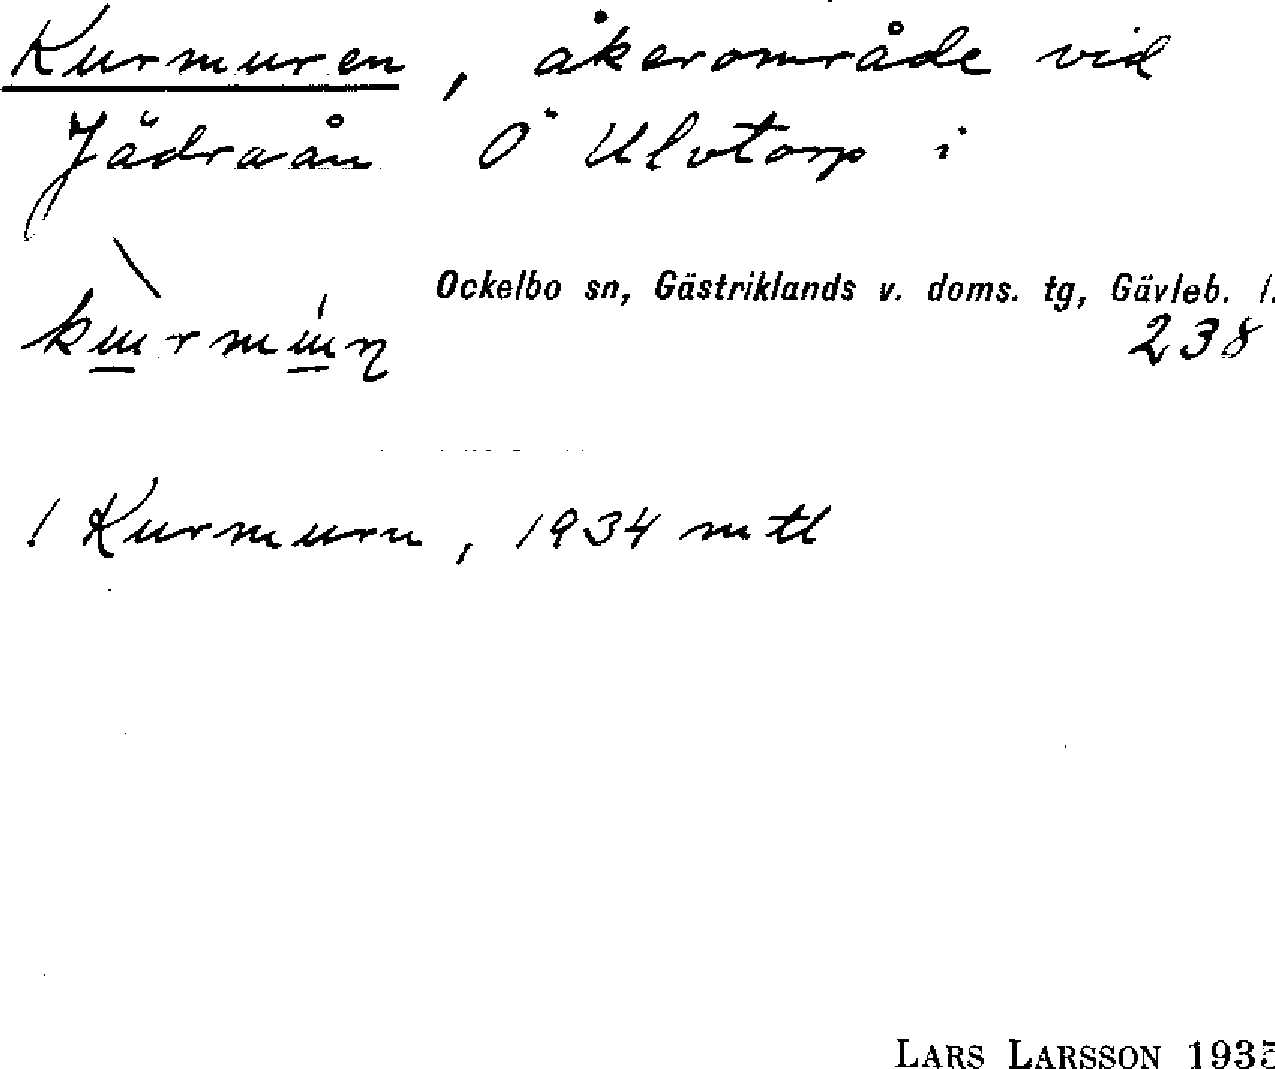 Kurmuren, åkerområde vid
Jädraån Ö Ulvtorp i
Ockelbo sn, Gästriklands v. doms. tg, Gävleb. l.
238
! Kurmurn, 1934 mtl
LARS LARSSON 1935